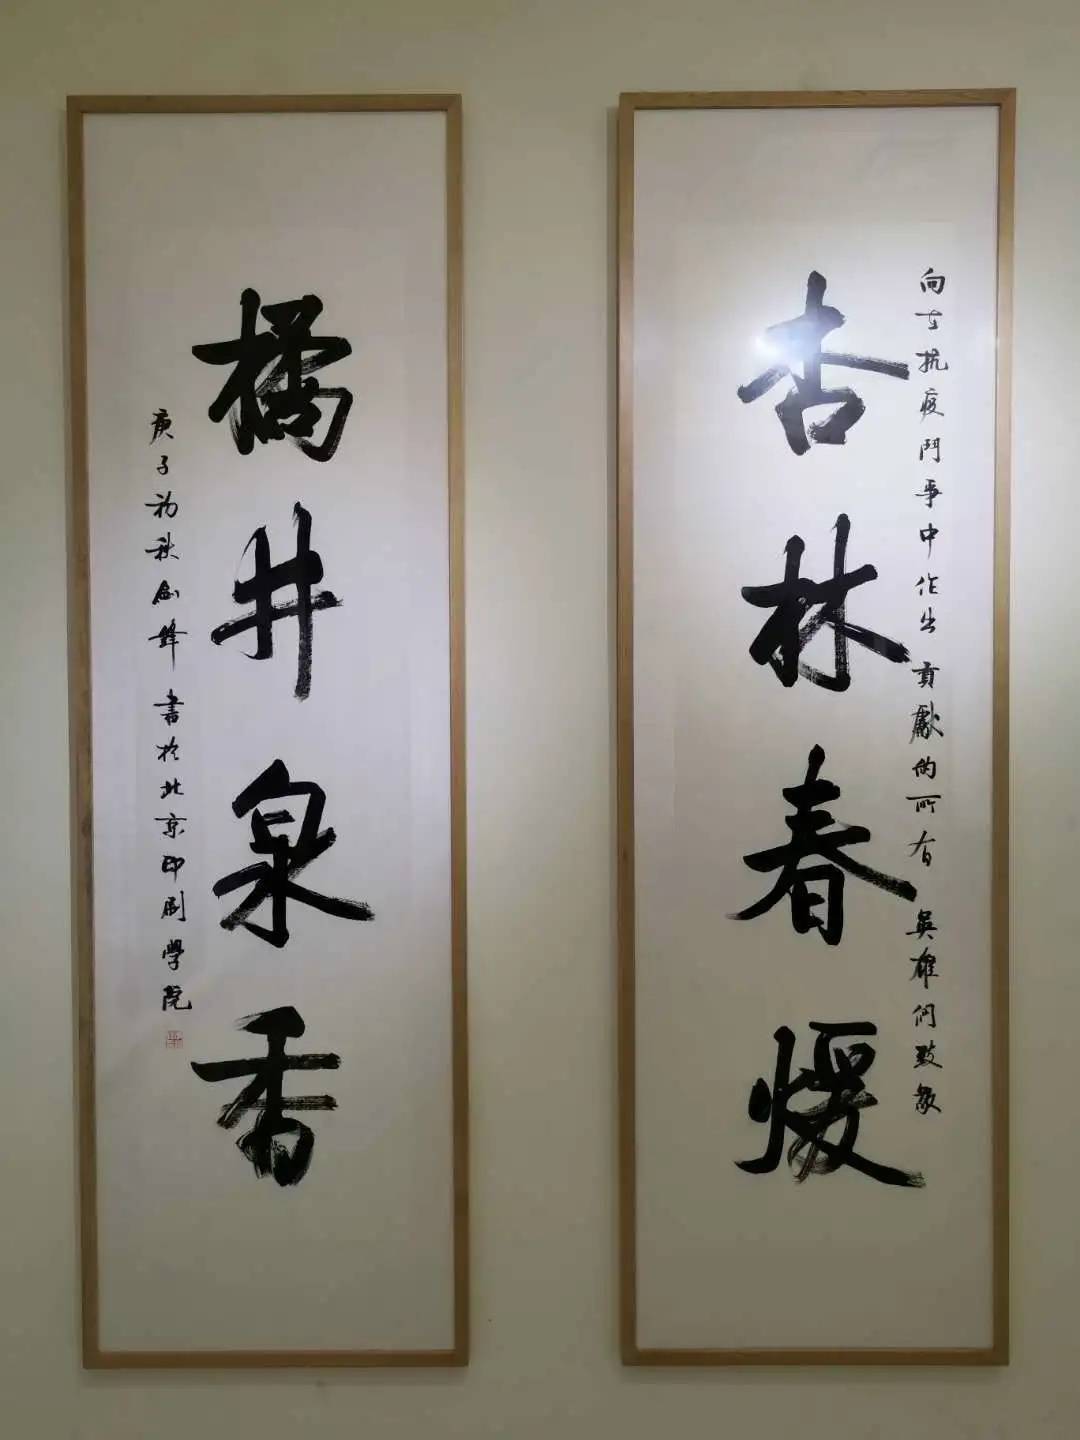 向在抗疫鬥爭中作出貢獻的所有英雄們致敬
杏林春煖
橘井泉香
庚子初秋劍鋒書於北京印刷學院